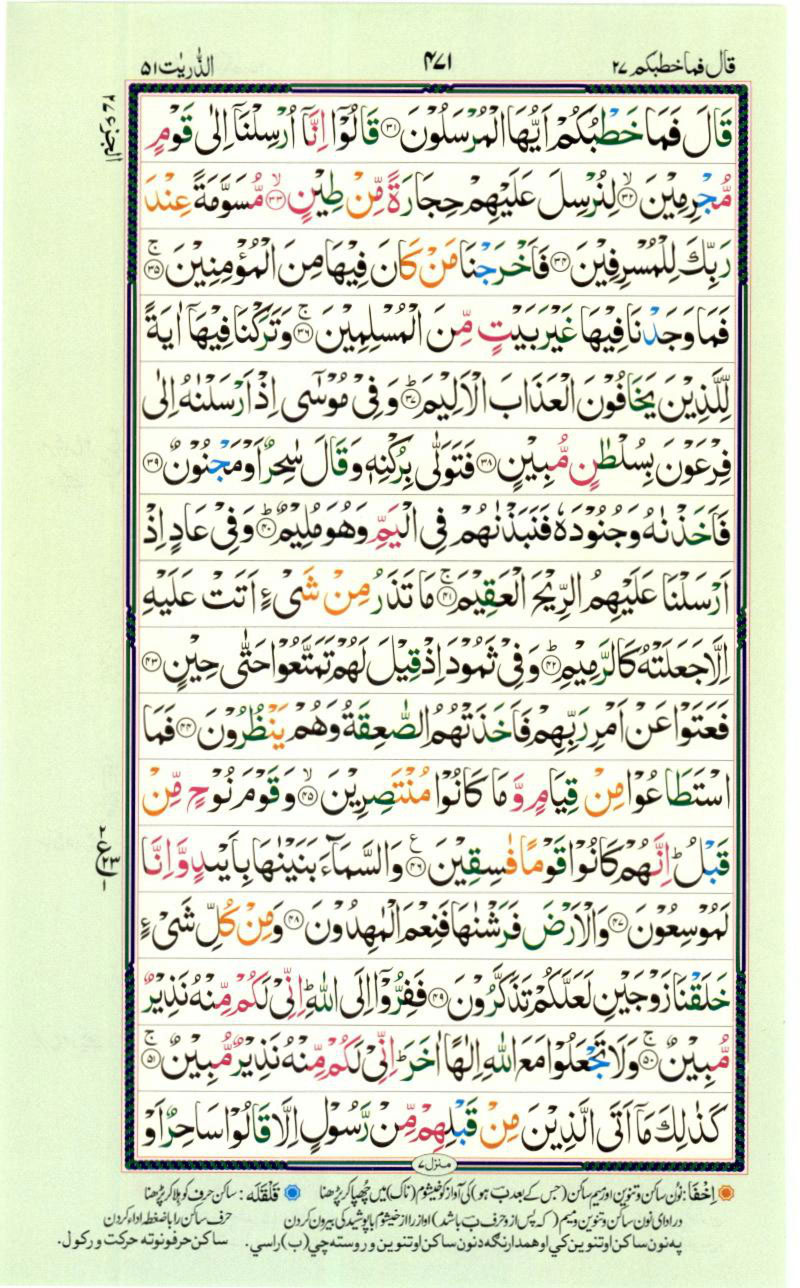 قال فما خطبكم ٢٧
۴۷۱
الذّٰریٰت ۵۱
الجزء ٢٧
قَالَ فَمَا خَطْبُكُمْ اَيُّهَا الْمُرْسَلُوْنَ ۝٣١ قَالُوْٓا اِنَّآ اُرْسِلْنَآ اِلٰى قَوْمٍ
مُّجْرِمِيْنَ ۝٣٢ۙ لِنُرْسِلَ عَلَيْهِمْ حِجَارَةً مِّنْ طِيْنٍ ۝٣٣ۙ مُّسَوَّمَةً عِنْدَ
رَبِّكَ لِلْمُسْرِفِيْنَ ۝٣٤ فَاَخْرَجْنَا مَنْ كَانَ فِيْهَا مِنَ الْمُؤْمِنِيْنَ ۝٣٥ۚ
فَمَا وَجَدْنَا فِيْهَا غَيْرَ بَيْتٍ مِّنَ الْمُسْلِمِيْنَ ۝٣٦ۚ وَتَرَكْنَا فِيْهَآ اٰيَةً
لِّلَّذِيْنَ يَخَافُوْنَ الْعَذَابَ الْاَلِيْمَ ۝٣٧ؕ وَفِيْ مُوْسٰٓى اِذْ اَرْسَلْنٰهُ اِلٰى
فِرْعَوْنَ بِسُلْطٰنٍ مُّبِيْنٍ ۝٣٨ فَتَوَلّٰى بِرُكْنِهٖ وَقَالَ سٰحِرٌ اَوْ مَجْنُوْنٌ ۝٣٩
فَاَخَذْنٰهُ وَجُنُوْدَهٗ فَنَبَذْنٰهُمْ فِى الْيَمِّ وَهُوَ مُلِيْمٌ ۝٤٠ؕ وَفِيْ عَادٍ اِذْ
اَرْسَلْنَا عَلَيْهِمُ الرِّيْحَ الْعَقِيْمَ ۝٤١ۚ مَا تَذَرُ مِنْ شَىْءٍ اَتَتْ عَلَيْهِ
اِلَّا جَعَلَتْهُ كَالرَّمِيْمِ ۝٤٢ؕ وَفِيْ ثَمُوْدَ اِذْ قِيْلَ لَهُمْ تَمَتَّعُوْا حَتّٰى حِيْنٍ ۝٤٣
فَعَتَوْا عَنْ اَمْرِ رَبِّهِمْ فَاَخَذَتْهُمُ الصّٰعِقَةُ وَهُمْ يَنْظُرُوْنَ ۝٤٤ فَمَا
اسْتَطَاعُوْا مِنْ قِيَامٍ وَّمَا كَانُوْا مُنْتَصِرِيْنَ ۝٤٥ۙ وَقَوْمَ نُوْحٍ مِّنْ
قَبْلُؕ اِنَّهُمْ كَانُوْا قَوْمًا فٰسِقِيْنَ ۝٤٦ۧ وَالسَّمَآءَ بَنَيْنٰهَا بِاَيْىدٍ وَّاِنَّا
لَمُوْسِعُوْنَ ۝٤٧ وَالْاَرْضَ فَرَشْنٰهَا فَنِعْمَ الْمٰهِدُوْنَ ۝٤٨ وَمِنْ كُلِّ شَىْءٍ
خَلَقْنَا زَوْجَيْنِ لَعَلَّكُمْ تَذَكَّرُوْنَ ۝٤٩ فَفِرُّوْٓا اِلَى اللّٰهِؕ اِنِّيْ لَكُمْ مِّنْهُ نَذِيْرٌ
مُّبِيْنٌ ۝٥٠ۚ وَلَا تَجْعَلُوْا مَعَ اللّٰهِ اِلٰهًا اٰخَرَؕ اِنِّيْ لَكُمْ مِّنْهُ نَذِيْرٌ مُّبِيْنٌ ۝٥١ۚ
كَذٰلِكَ مَآ اَتَى الَّذِيْنَ مِنْ قَبْلِهِمْ مِّنْ رَّسُوْلٍ اِلَّا قَالُوْا سَاحِرٌ اَوْ
ع ٢ ٢٣ ١
منزل ٧
اِخفَا: نُون ساکن و تنوین اور میم ساکن (جس کے بعد ب ہو) کی آواز کو خیشوم (ناک) میں چُھپا کر پڑھنا قَلقَلَه: ساکن حرف کو ہلا کر پڑھنا
در ادای نون ساکن و تنوین و میم (که پس از و حرف ب باشد) آواز را از خیشوم با پوشیدگی بیرون کردن حرف ساکن را با ضغطه اداء کردن
په نون ساکن او تنوین کي او همدارنګه د نون ساکن او تنوین و روسته چي (ب) راسي. ساکن حرفو نو ته حرکت ورکول.